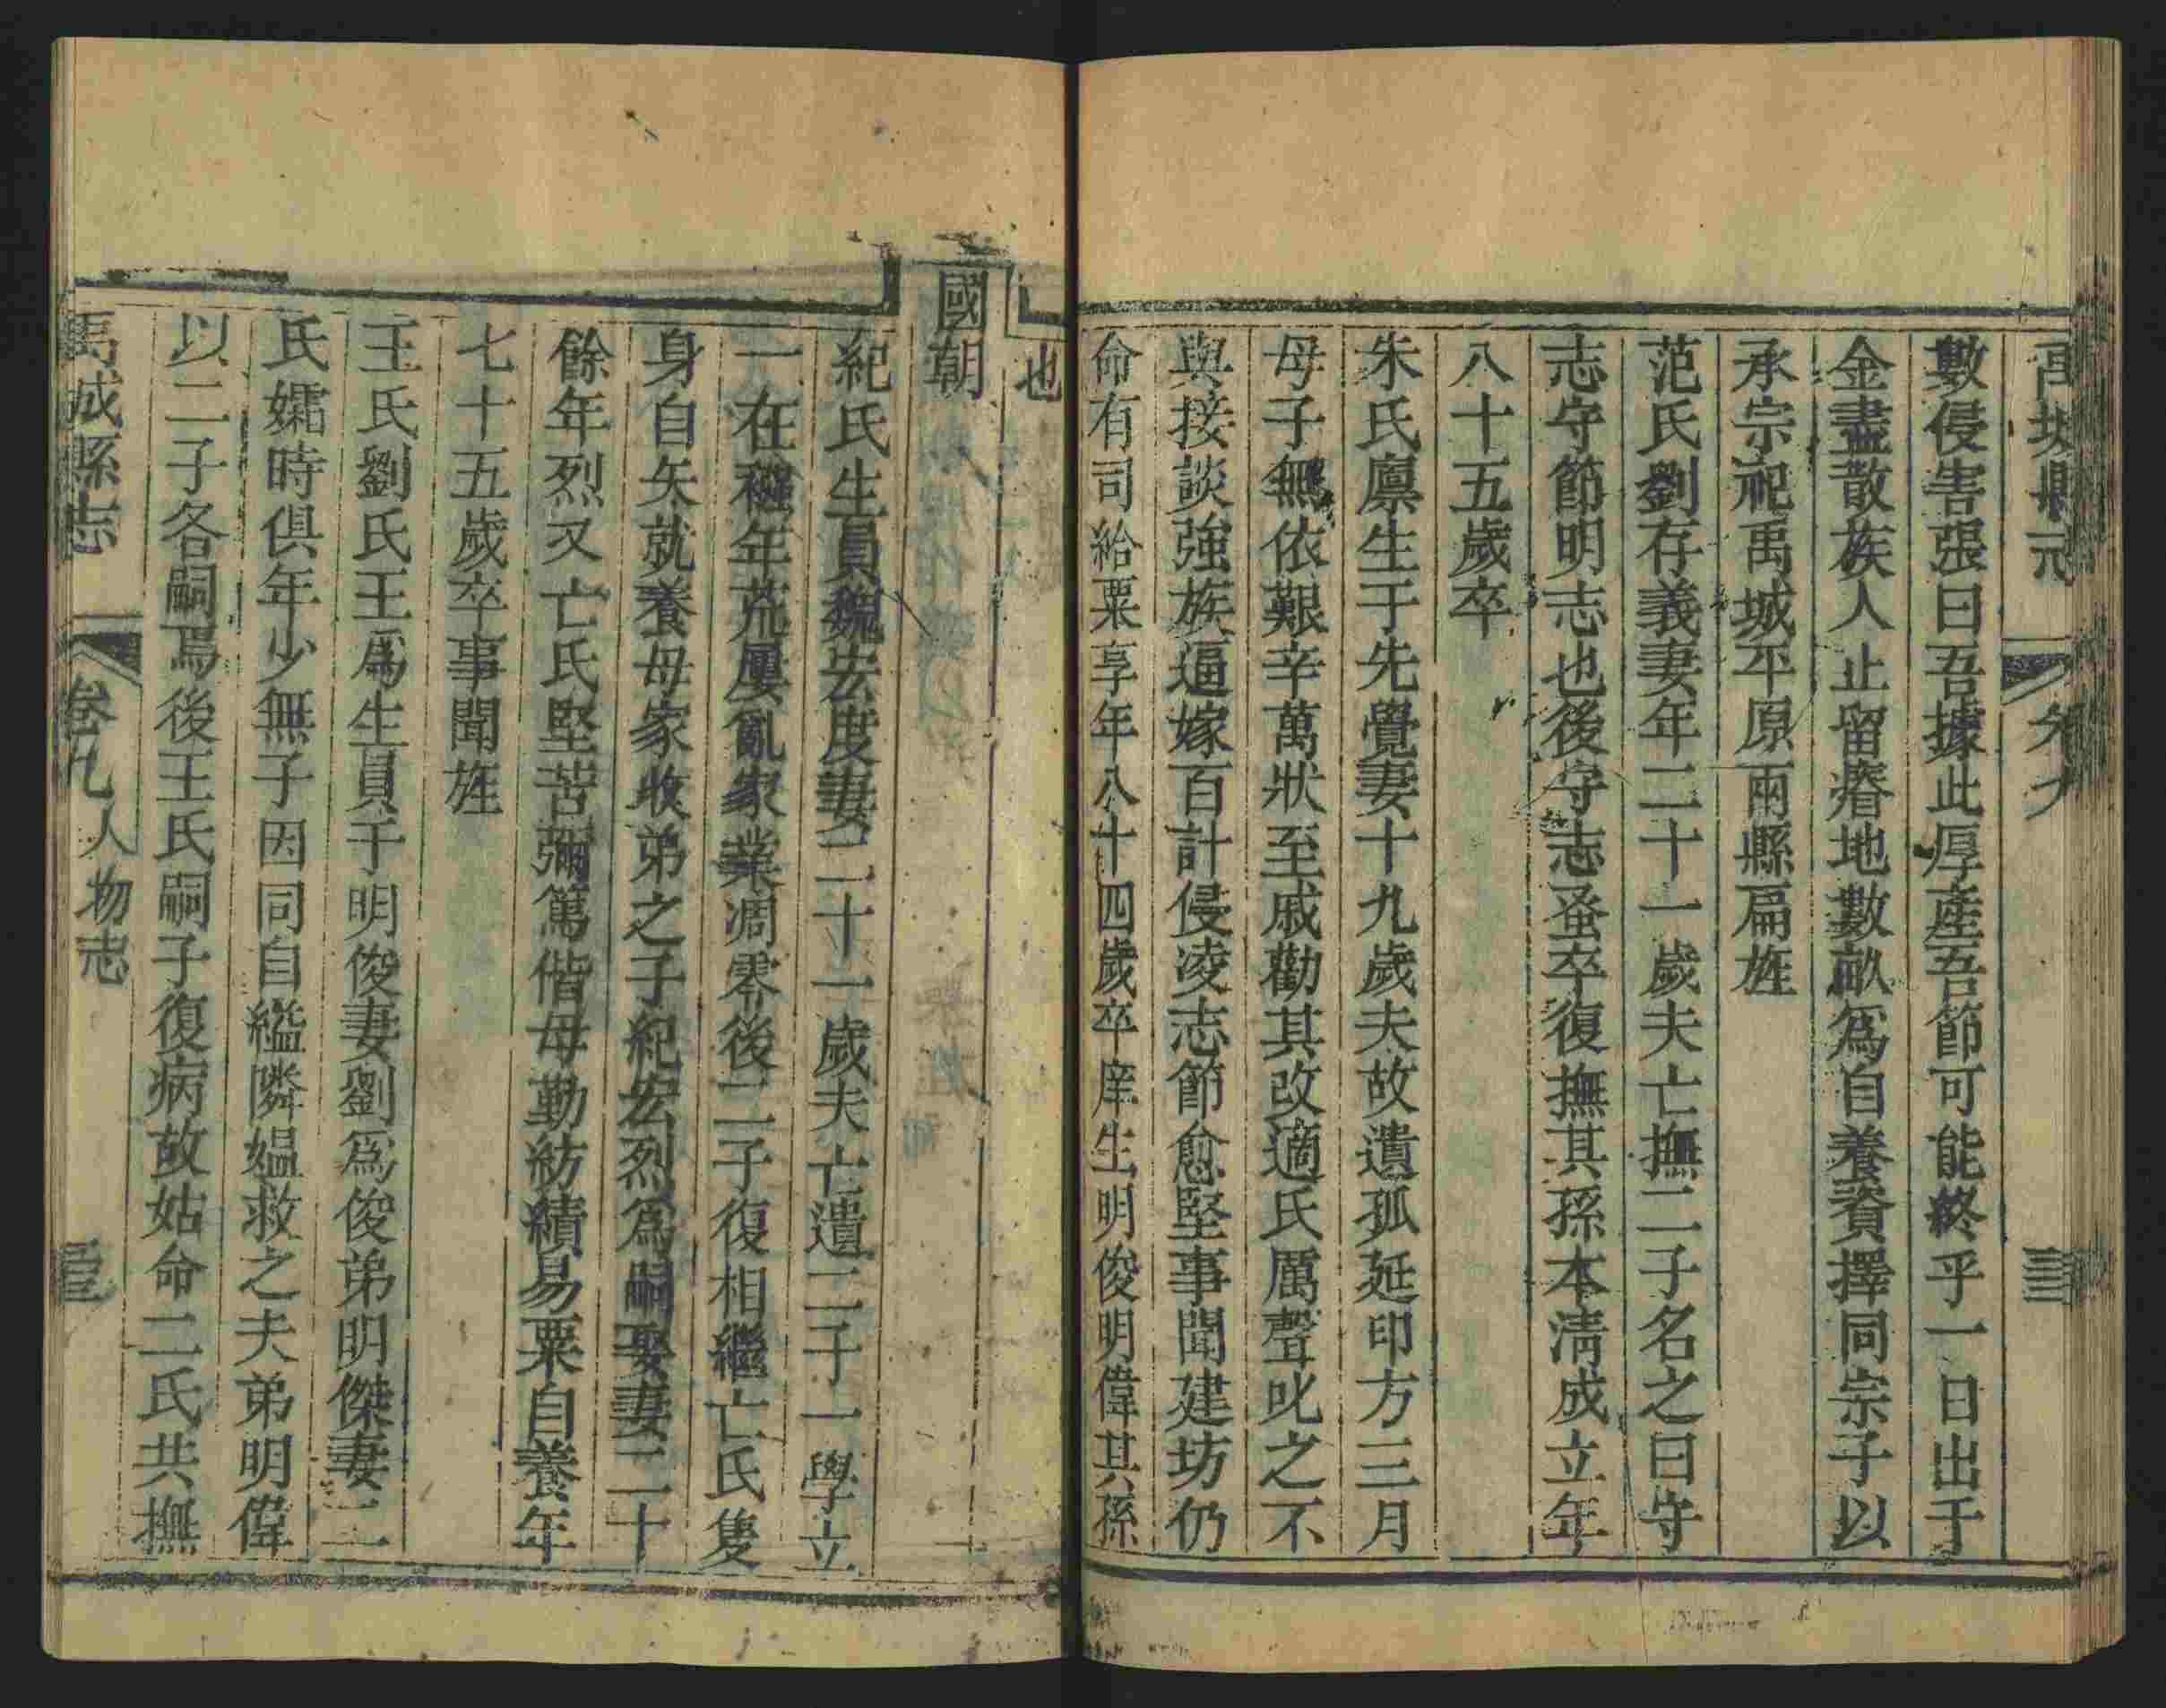 數侵害張曰吾據此厚產吾節可能終乎一日出于
金盡散族人止留瘠地數畝為自養資擇同宗子以
承宗祀禹城平原兩縣扁旌
范氏劉存義妻年二十一歲夫亡撫二子名之曰守
志守節明志也後守志蚤卒復撫其孫本清成立年
八十五歲卒
朱氏廪生于先覺妻十九歲夫故遺孤延印方三月
母子無依艱辛萬狀至戚勸其改適氏厲聲叱之不
與接談強族逼嫁百計侵凌志節愈堅事聞建坊仍
命有司給粟享年八十四歲卒庠生明俊明偉其孫
也
國朝
紀氏生員魏宏度妻二十一歲夫亡遺二子一學立
一在穟年荒屢亂家業凋零後二子復相繼亡氏隻
身自矢就養母家收弟之子紀宏烈為嗣娶妻二十
餘年烈又亡氏堅苦彌篤偕母勤紡績易粟自養年
七十五歲卒事聞旌
王氏劉氏王為生員于明俊妻劉為俊弟明傑妻二
氏孀時俱年少無子因同自縊隣媼救之夫弟明偉
以二子各嗣焉後王氏嗣子復病故姑命二氏共撫
禹城縣志
卷九
人物志